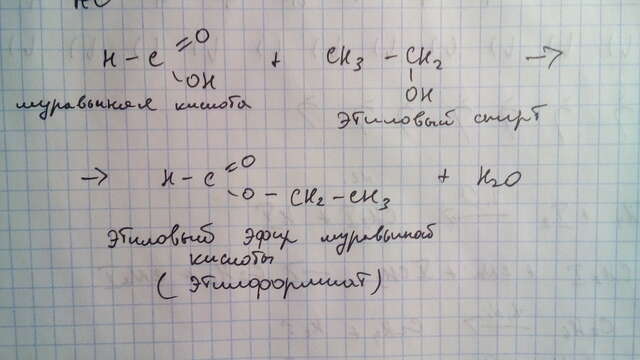 H - C =O -OH + CH3 - CH2 - OH →
муравьиная кислота этиловый спирт
→ H - C =O -O - CH2 - CH3 + H2O
этиловый эфир муравьиной
кислоты
(этилформиат)